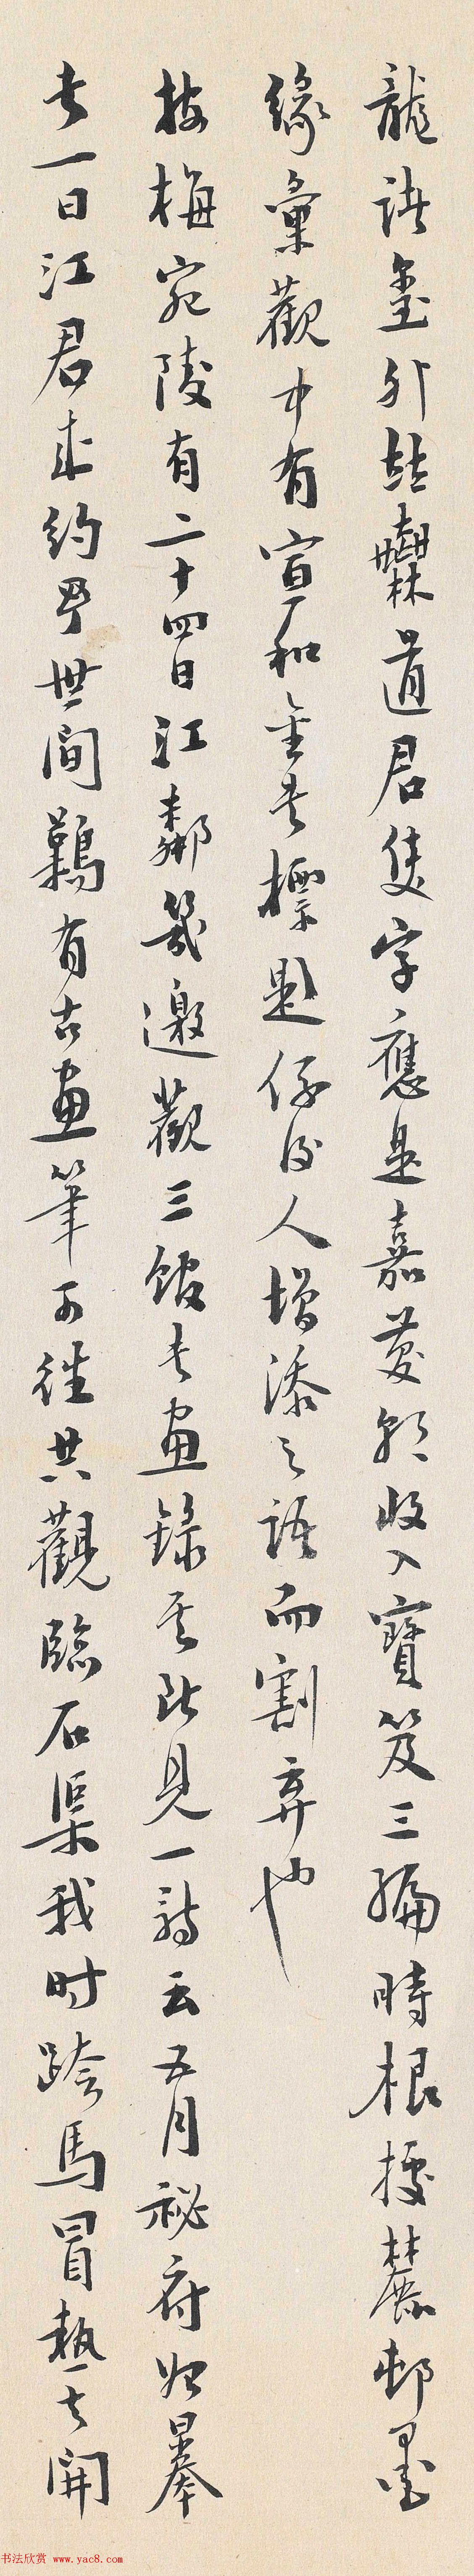 龍諸璽外絕無道君隻字應是嘉慶朝收入寶笈三編時根據麓邨墨
緣彙觀中有宣和金書標題係後人增添之語而割棄也
按梅宛陵有二十四日江鄰幾邀觀三館書畫錄其所見一詩云五月秘府始暴
書一日江君來約予世間難有古畫筆可往共觀臨石渠我時跨馬冒熱去開
书法欣赏 www.yac8.com